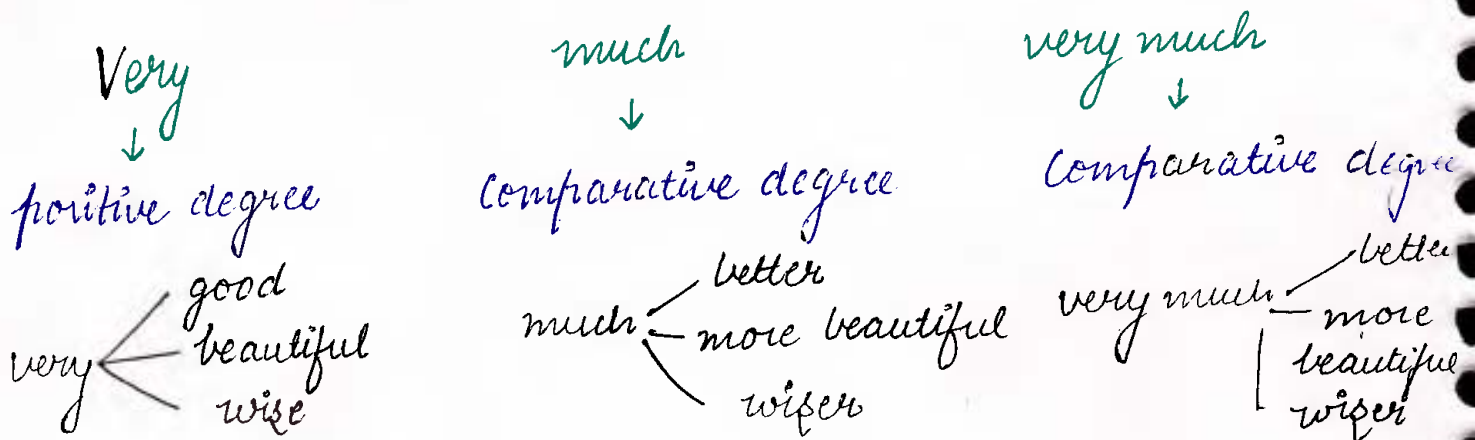 Very
↓
positive degree
very
good
beautiful
wise
much
↓
comparative degree
much
better
more beautiful
wiser
very much
↓
Comparative degree
very much
better
more
beautiful
wiser